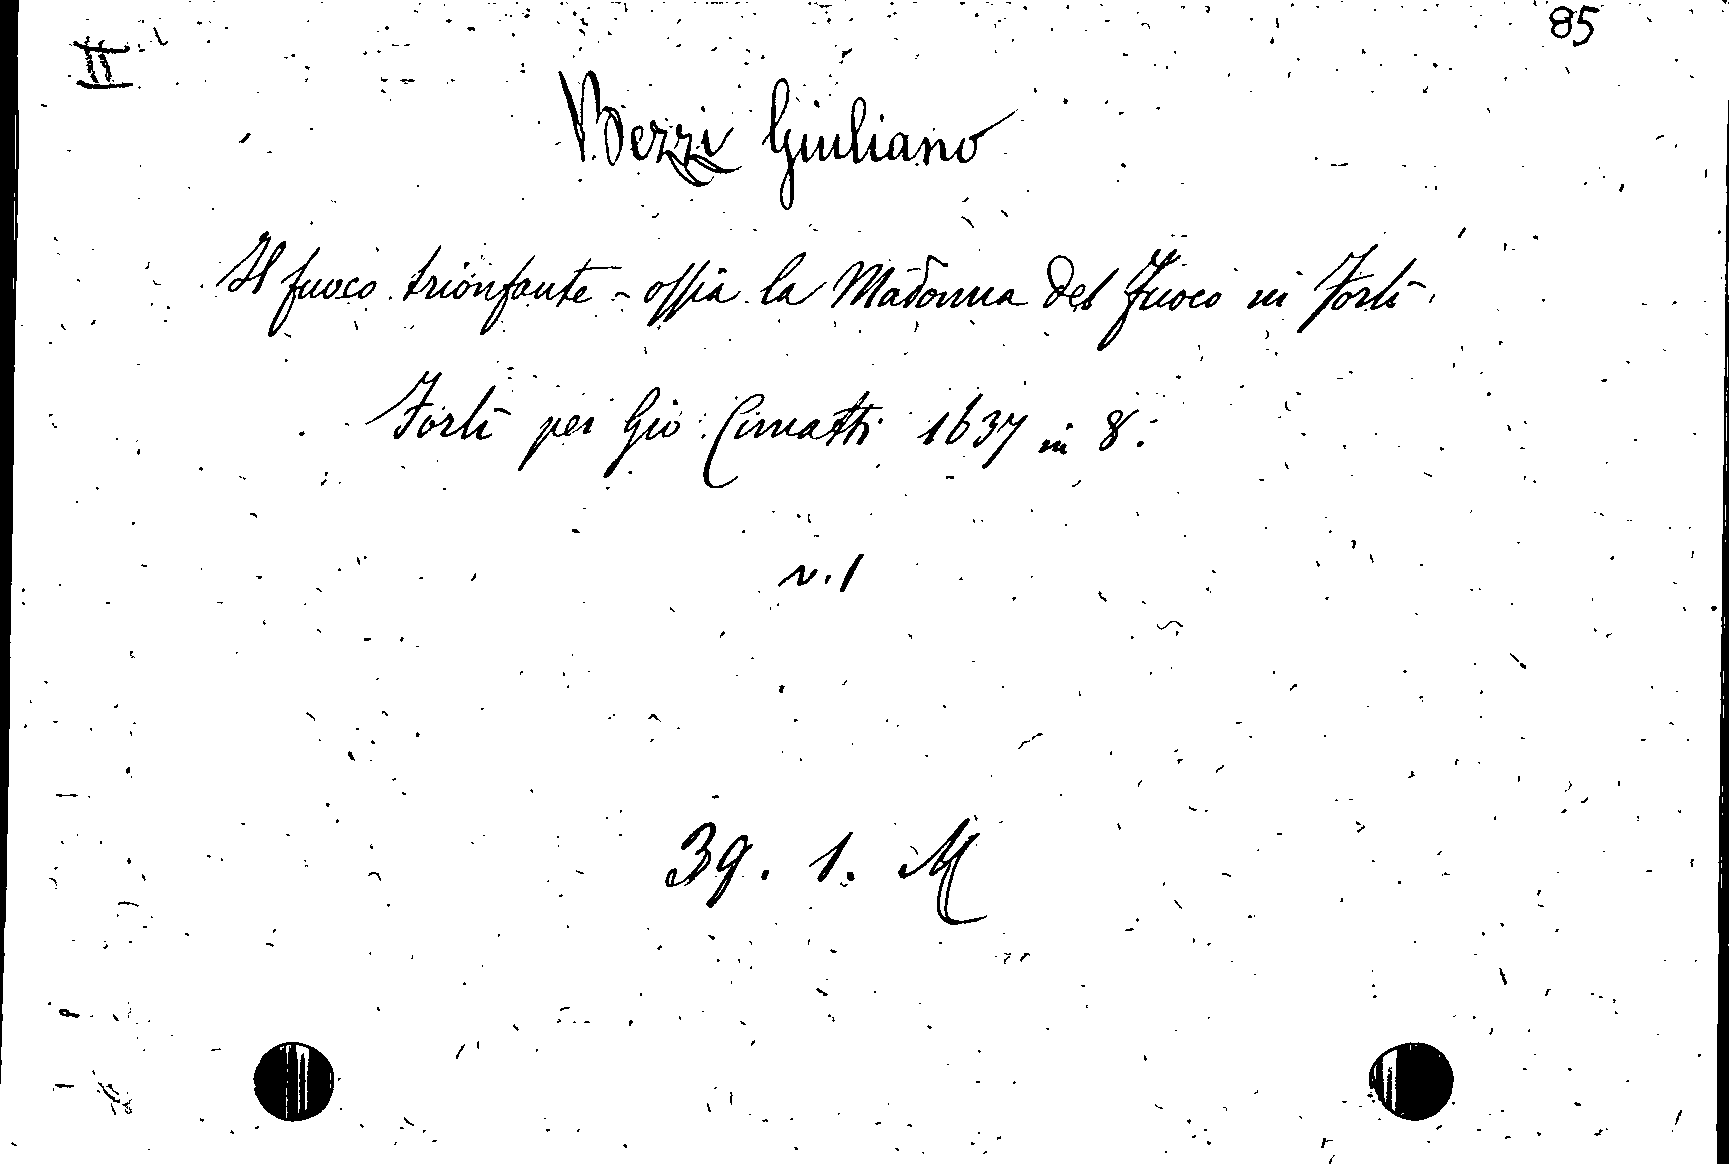 85
II
Bezzi Giuliano
Il fuoco trionfante - ossia la Madonna del Fuoco in Forlì.
Forlì per Gio: Cimatti 1637 in 8.°
v. 1
39. 1. M